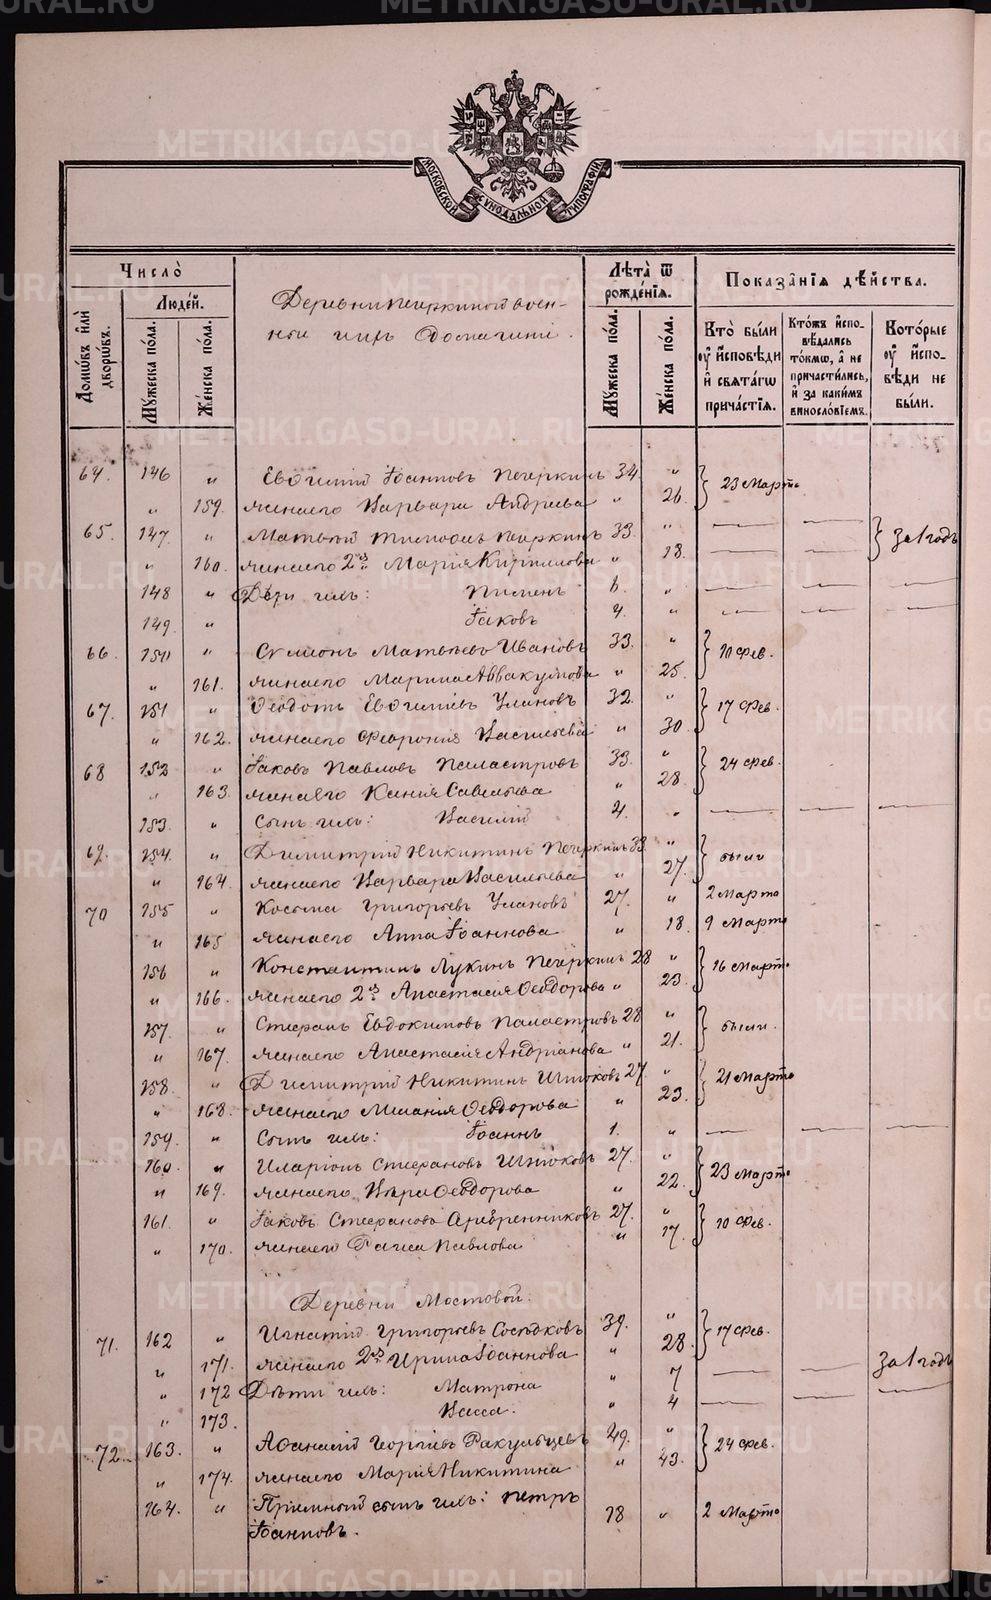 METRIKI.GASO-URAL.RU
МОСКОВСКОЙ СѴНОДАЛЬНОЙ ТИПОГРАФІИ
Число̀
Домѡ́въ и҆лѝ дворѡ́въ.
Люде́й.
Мꙋ́жеска по́ла.
Же́нска по́ла.
Деревни Печеркиной воен-
ные и ихъ Домашніе.
Лѣта̀ ѿ рожде́нїѧ.
Мꙋ́жеска по́ла.
Же́нска по́ла.
Показа́нїѧ дѣ́йства.
Кто̀ бы́ли ᲂу҆ и҆сповѣ́ди и҆ свѧта́гѡ прича́стїѧ.
Кто́жъ и҆спо-вѣ́дались то́кмѡ, а҆ не причасти́лись, и҆ за каки́мъ винослові́емъ.
Кото́рые ᲂу҆ и҆спо-вѣ́ди не бы́ли.
64. 146 " Евѳимій Іоанновъ Печеркинъ 34 " 23 Марта
" 159. жена его Варвара Андреева " 26
65. 147 " Матвѣй Печеркинъ 33. " за 1 годъ
" 160. жена его 2я Марія Кириллова " 18.
148 " Дѣти ихъ: Пименъ 6. "
149. " Іаковъ 4. "
66. 150 " Симеонъ Матвѣевъ Ивановъ 33. " 10 Фев.
" 161. жена его Марина Аввакумова " 25.
67. 151 " Ѳеодотъ Евѳиміевъ Улановъ 32. " 17 Фев.
" 162. жена его Феврониѧ Васильева " 30
68 152 " Іаковъ Павловъ Паластровъ 33. " 24 Фев.
" 163. жена его Ксенія Савельева " 28
153. " Сынъ ихъ: Василій 4. "
69. 154. " Димитрій Никитинъ Печеркинъ 33 " были
" 164. жена его Варвара Васильева " 27.
70 155 " Косьма Григорьевъ Улановъ 27. " 2 Марта
" 165 жена его Анна Іоаннова " 18. 9 Марта
156 " Константинъ Лукинъ Печеркинъ 28 " 16 Марта
" 166. жена его 2я Анастасія Ѳеодорова " 23.
157. " Стефанъ Евдокимовъ Паластровъ 28 " были.
" 167. жена его Анастасія Андріанова " 21.
158. " Димитрій Никитинъ Шитоковъ 27. " 21 Марта
" 168. жена его Меланія Ѳеодорова " 23.
159. " Сынъ ихъ: Іоаннъ 1. "
160. " Иларіонъ Стефановъ Шитоковъ 27. " 23 Марта
" 169. жена его Вѣра Ѳеодорова " 22.
161. " Іаковъ Стефановъ Серебренниковъ 27. " 10 Фев.
" 170. жена его Раиса Павлова " 17.
Деревни Мостовой.
71. 162 " Игнатій Григорьевъ Сосѣдковъ 39. " 17 Фев.
" 171. жена его 2я Ирина Іоаннова " 28. за 1 годъ
" 172 Дѣти ихъ: Матрона " 7
" 173. Васса. " 4
72. 163. " Аѳанасій Георгіевъ Ракульцевъ 49. " 24 Фев.
" 174. жена его Марія Никитина " 43.
164. " Пріемный сынъ ихъ: Петръ 18 " 2 Марта
Іоанновъ.